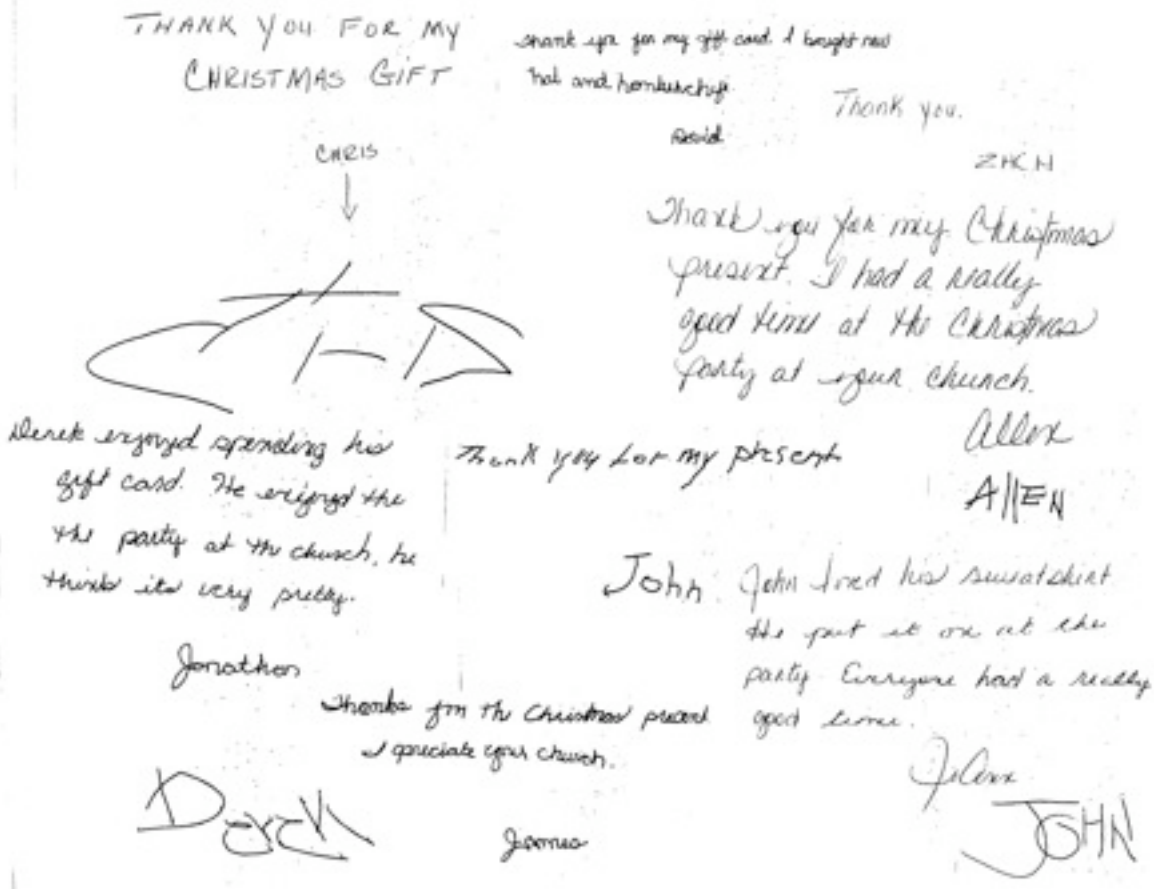 THANK YOU FOR MY
CHRISTMAS GIFT
CHRIS
Thank you for my gift card. I bought new
hat and
David
Thank you.
ZACH
Thank you for my Christmas
present. I had a really
good time at the Christmas
party at your church.
Allen
AllEN
Derek enjoyed spending his
gift card. He enjoyed the
the party at the church, he
thinks its very pretty.
Jonathon
Derek
Thank you for my present
John
John loved his sweatshirt
He put it on at the
party Everyone had a really
good time.
John
JOHN
Thanks for the Christmas present
I apreciate your church.
James